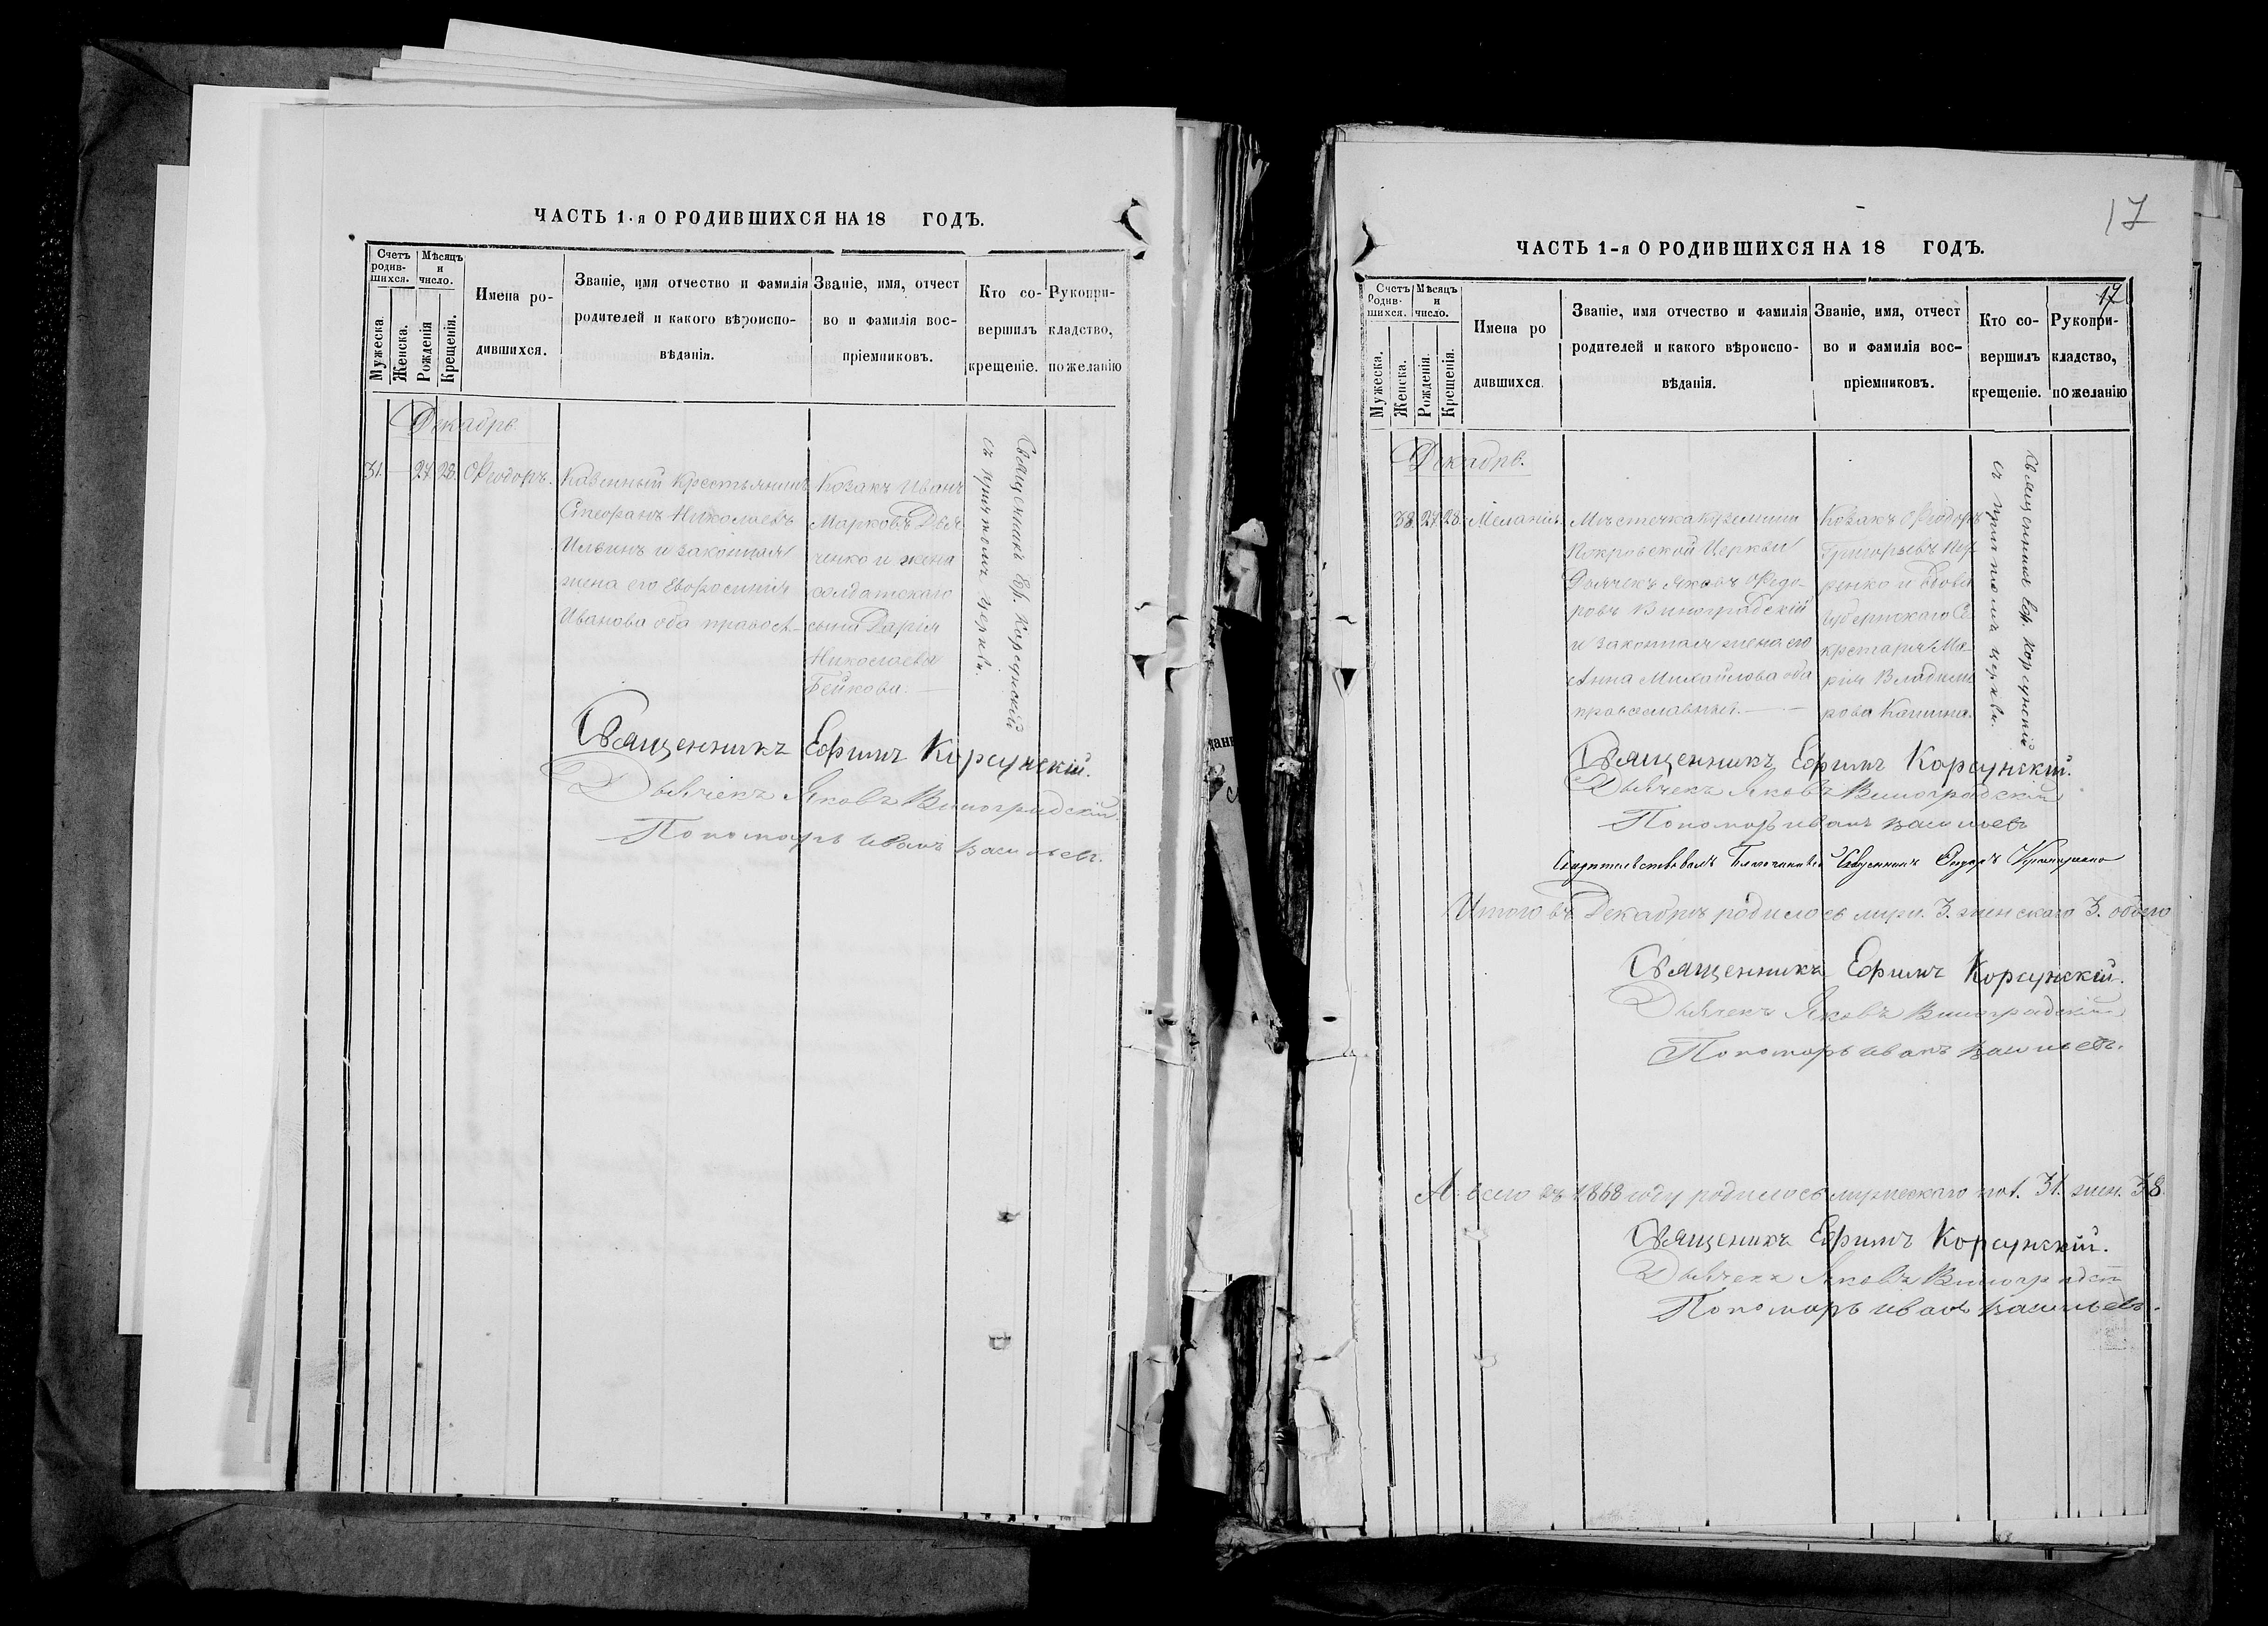 ЧАСТЬ 1-я О РОДИВШИХСЯ НА 18 ГОДЪ.
Счетъ родив-шихся.
Мѣсяцъ и число.
Мужеска.
Женска.
Рожденія
Крещенія.
Имена ро-
дившихся.
Званіе, имя отчество и фамилія
родителей и какого вѣроиспо-
вѣданія.
Званіе, имя, отчест
во и фамилія вос-
пріемниковъ.
Кто со-
вершилъ
крещеніе.
Рукопри-
кладство,
по желанію
Декабрь
31. 27 28. Ѳеодоръ.
Казенный крестьянинъ
Стефанъ Николаевъ
Ильинъ и законная
жена его Евфросинія
Иванова оба правосл.
Козакъ Иванъ
Марковъ Дья
ченко и жена
солдатскаго
сына Дарія
Николаева
Бейкова.
Священникъ Еф. Корсунскій
съ причтомъ церкви.
Священникъ Ефимъ Корсунскій.
Дьячекъ Яковъ Виноградскій
Пономарь Иванъ Васильевъ.
17
ЧАСТЬ 1-я О РОДИВШИХСЯ НА 18 ГОДЪ.
17
Счетъ Родив-шихся.
Мѣсяцъ и число.
Мужеска.
Женска.
Рожденія.
Крещенія.
Имена ро
дившихся.
Званіе, имя отчество и фамилія
родителей и какого вѣроиспо-
вѣданія.
Званіе, имя, отчест
во и фамилія вос-
пріемниковъ.
Кто со-
вершилъ
крещеніе.
Рукопри-
кладство,
по желанію
Декабрь.
38. 27. 28. Меланія.
Мѣстечка
Покровской Церкви
Дьячекъ Яковъ Ѳедо
ровъ Виноградскій
и законная жена его
Анна Михайлова оба
православные.
Козакъ Ѳеодоръ
Григорьевъ
ренко и вдова
Губернскаго Се
кретаря Ма
рія Владими
рова
Священникъ Еф. Корсунскій
съ причтомъ церкви.
Священникъ Ефимъ Корсунскій.
Дьячекъ Яковъ Виноградскій
Пономарь Иванъ Васильевъ
Свидетельствовалъ Благочинный Священникъ Ѳеодоръ
Итого въ Декабрѣ родилось муж. 3. женскаго 3. обоего
Священникъ Ефимъ Корсунскій.
Дьячекъ Яковъ Виноградскій
Пономарь Иванъ Васильевъ.
А всего въ 1868 году родилось мужескаго пол. 31. жен. 38
Священикъ Ефимъ Корсунскій.
Дьячекъ Яковъ Виноградскій
Пономарь Иванъ Васильевъ.